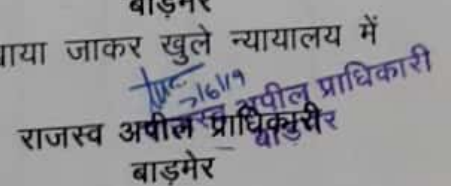 बाड़मेर
ाया जाकर खुले न्यायालय में
7/6/19
अपील प्राधिकारी
राजस्व अपील प्राधिकारी
बाड़मेर
बाड़मेर